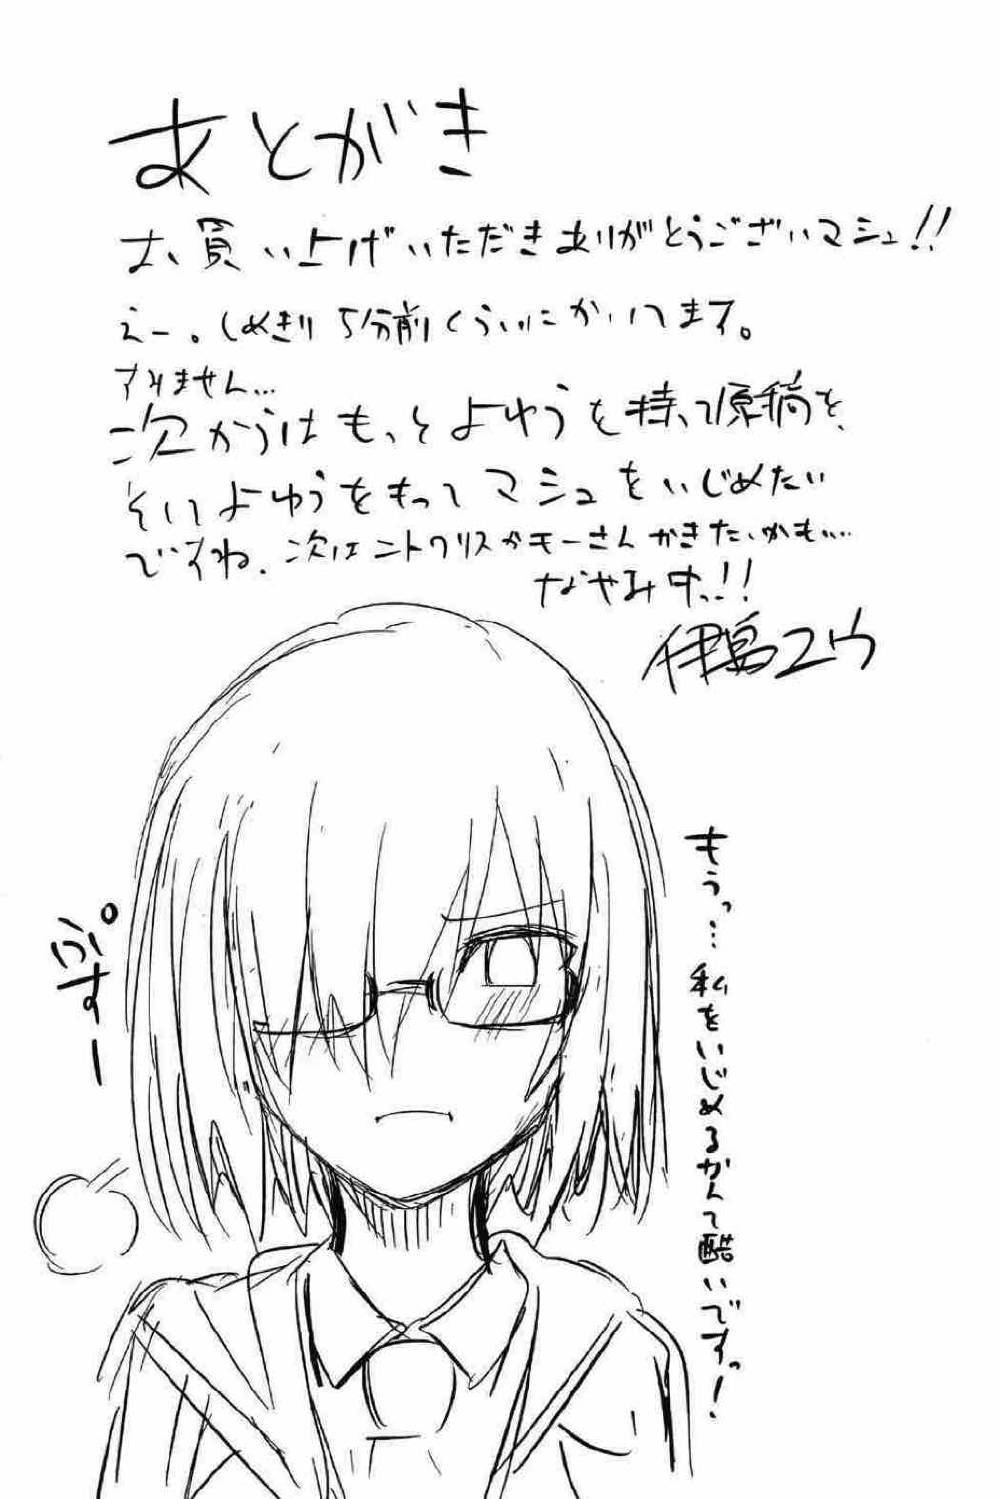 あとがき
お買い上げいただきありがとうございマシュ!!
えー。しめきり5分前くらいにかいてます。
すみません…
次からはもっとよゆうを持って原稿を、
そしてよゆうをもってマシュをいじめたい
ですね。次はニトクリスかモーさんかきたいかも…
なやみ中っ!!
伊島ユウ
もうっ…私をいじめるなんて酷いですっ!
ぷすー